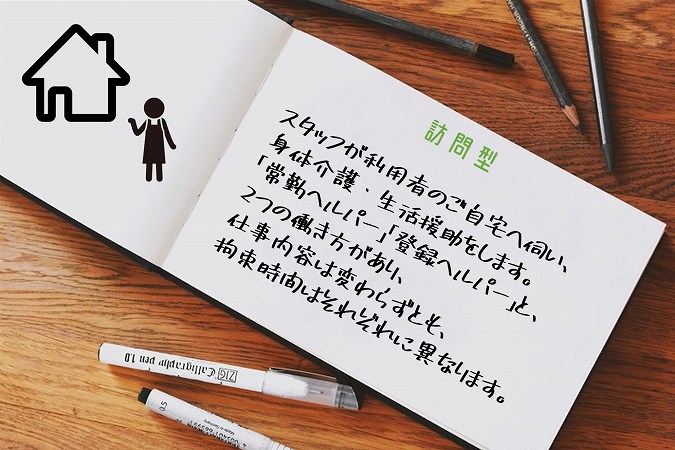 訪問型
スタッフが利用者のご自宅へ伺い、
身体介護、生活援助をします。
「常勤ヘルパー」「登録ヘルパー」と、
2つの働き方があり、
仕事内容は変わらずとも、
拘束時間はそれぞれに異なります。
ZIG Calligraphy pen 1.0
0.5
Made in Germany